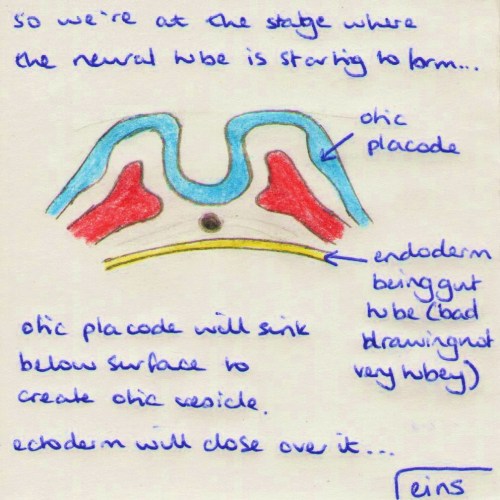 so we're at the stage where
the neural tube is starting to form...
otic
placode
endoderm
being gut
tube (bad
drawing not
very tubey)
otic placode will sink
below surface to
create otic vesicle.
ectoderm will close over it...
eins